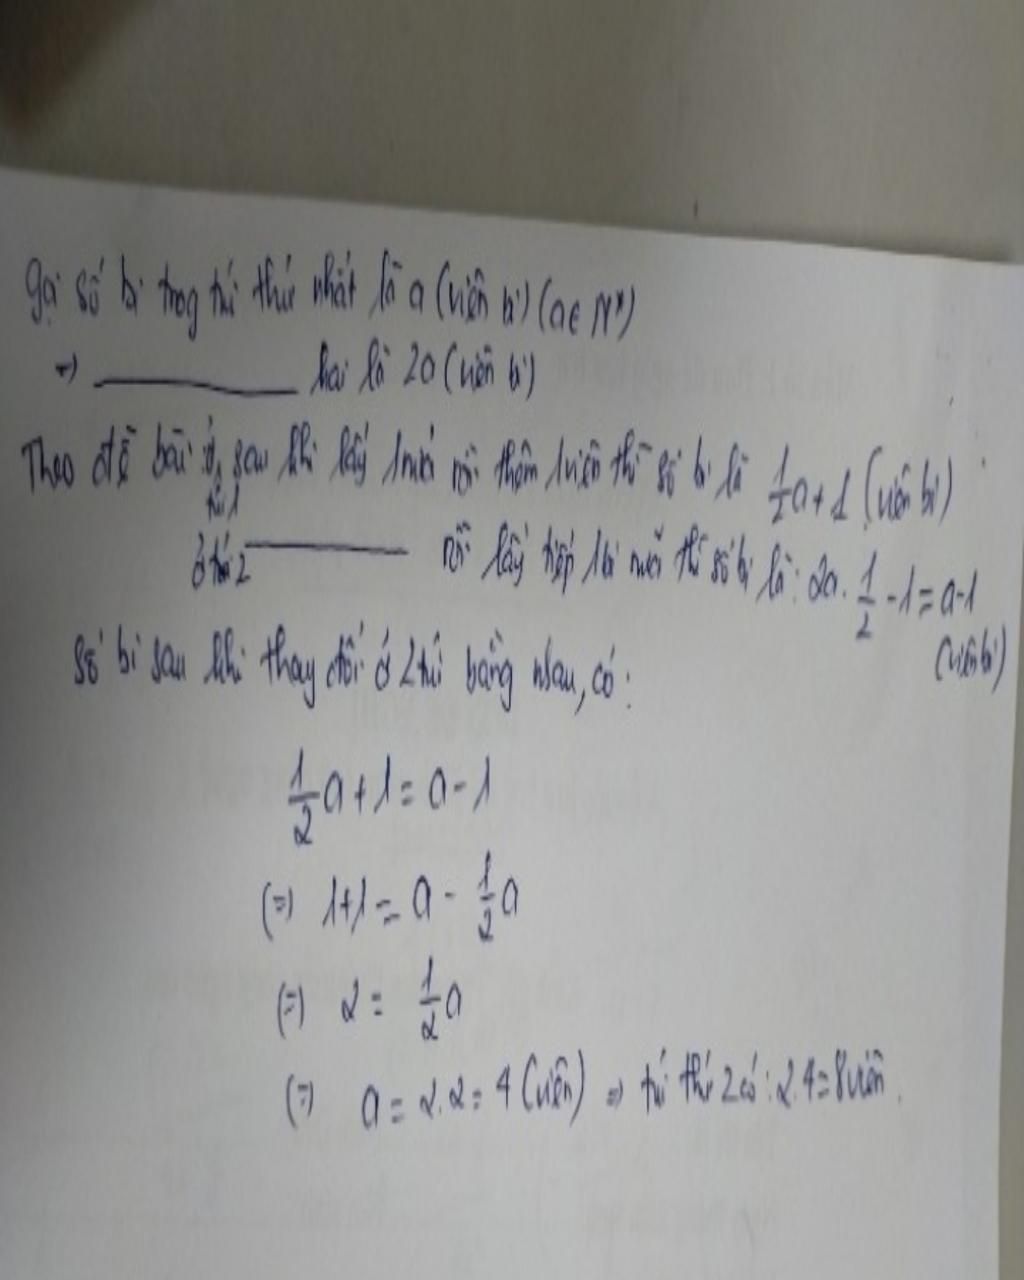 Gọi số bi trog túi thứ nhất là a (viên bi) (a ∈ N*)
=> ________ hai là 2a (viên bi)
Theo đề bài ở túi 1, sau khi lấy 1 nửa rồi thêm 1 viên thì số bi là 1/2a + 1 (viên bi)
ở túi 2 ________ rồi lấy tiếp 1 bi nữa thì số bi là: 2a. 1/2 - 1 = a - 1
(viên bi)
Số bi sau khi thay đổi ở 2 túi bằng nhau, có:
1/2 a + 1 = a - 1
(=) 1+1 = a - 1/2 a
(=) 2 = 1/2 a
(=) a = 2.2 = 4 (viên) => túi thứ 2 có: 2.4 = 8 viên.